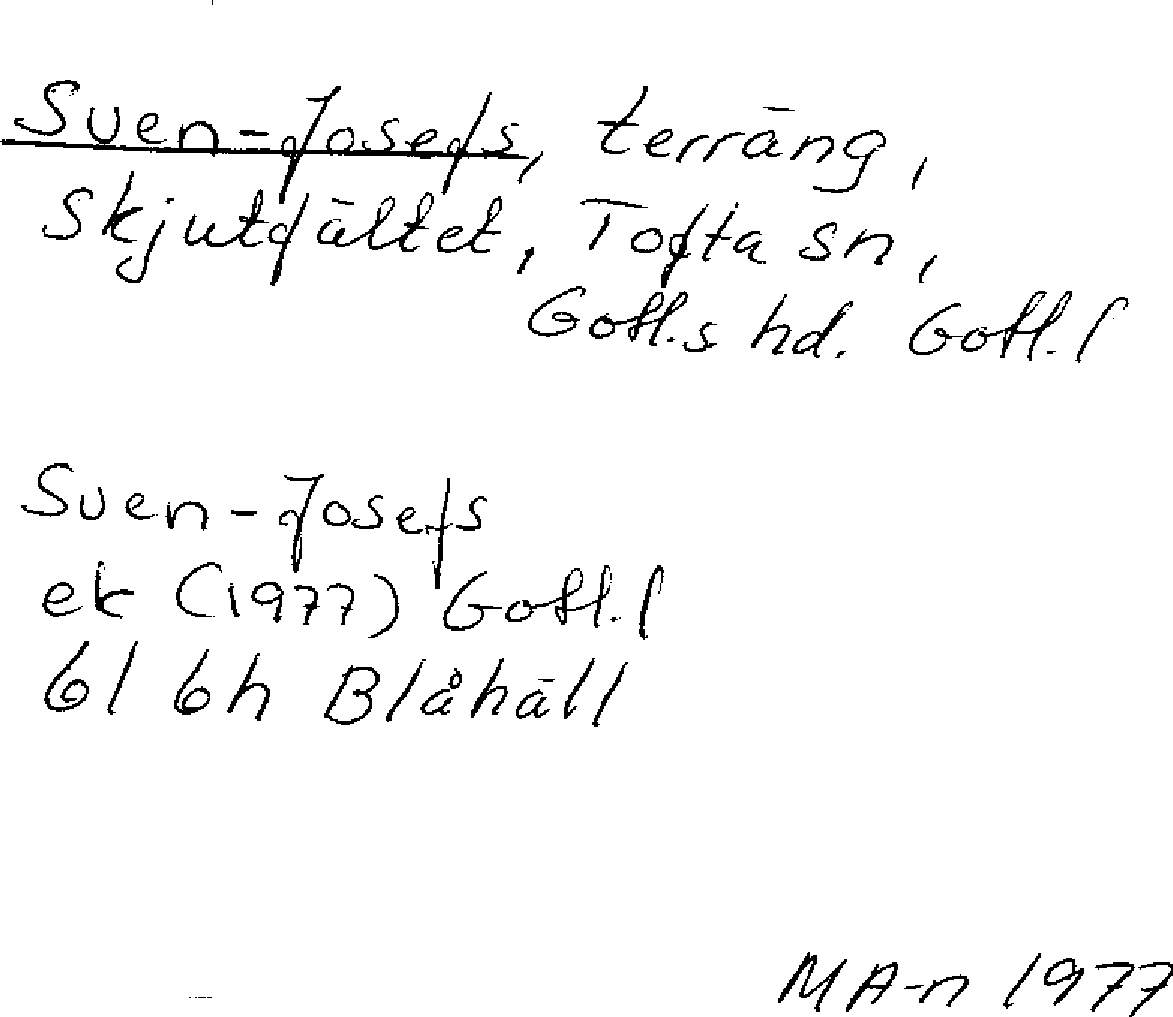 Sven-Josefs, terräng,
Skjutfältet, Tofta sn,
Gotl.s hd. Gotl. l
Sven-Josefs
ek (1977) Gotl. l
6I 6h Blåhäll
MA-n 1977